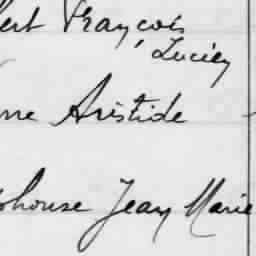 bert François
Lucien
rre Aristide
phonse Jean Marie